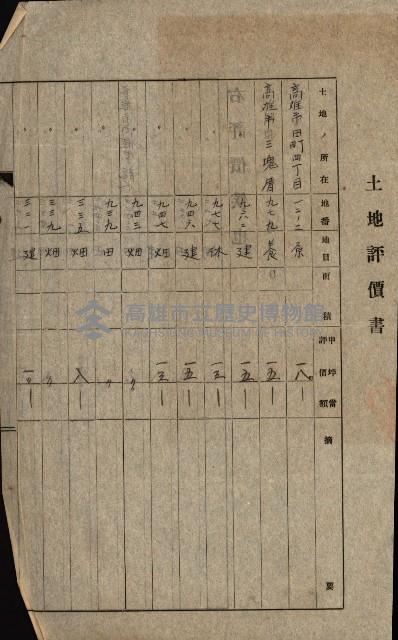 土地評價書
土地ノ所在 地番 地目 面積 甲坪當評價額 摘要
高雄市田町四丁目 一二ノ二 原 一八
高雄市三塊厝 九七九 養 一五
九六二 建 一五
九七七 林 一三
九四六 建 一五
九四七 畑 一三
九四三 畑 〃
九三九 田 〃
三三五 畑 八
三三九 畑 〃
三二一 建
高雄市立歷史博物館
KAOHSIUNG MUSEUM OF HISTORY